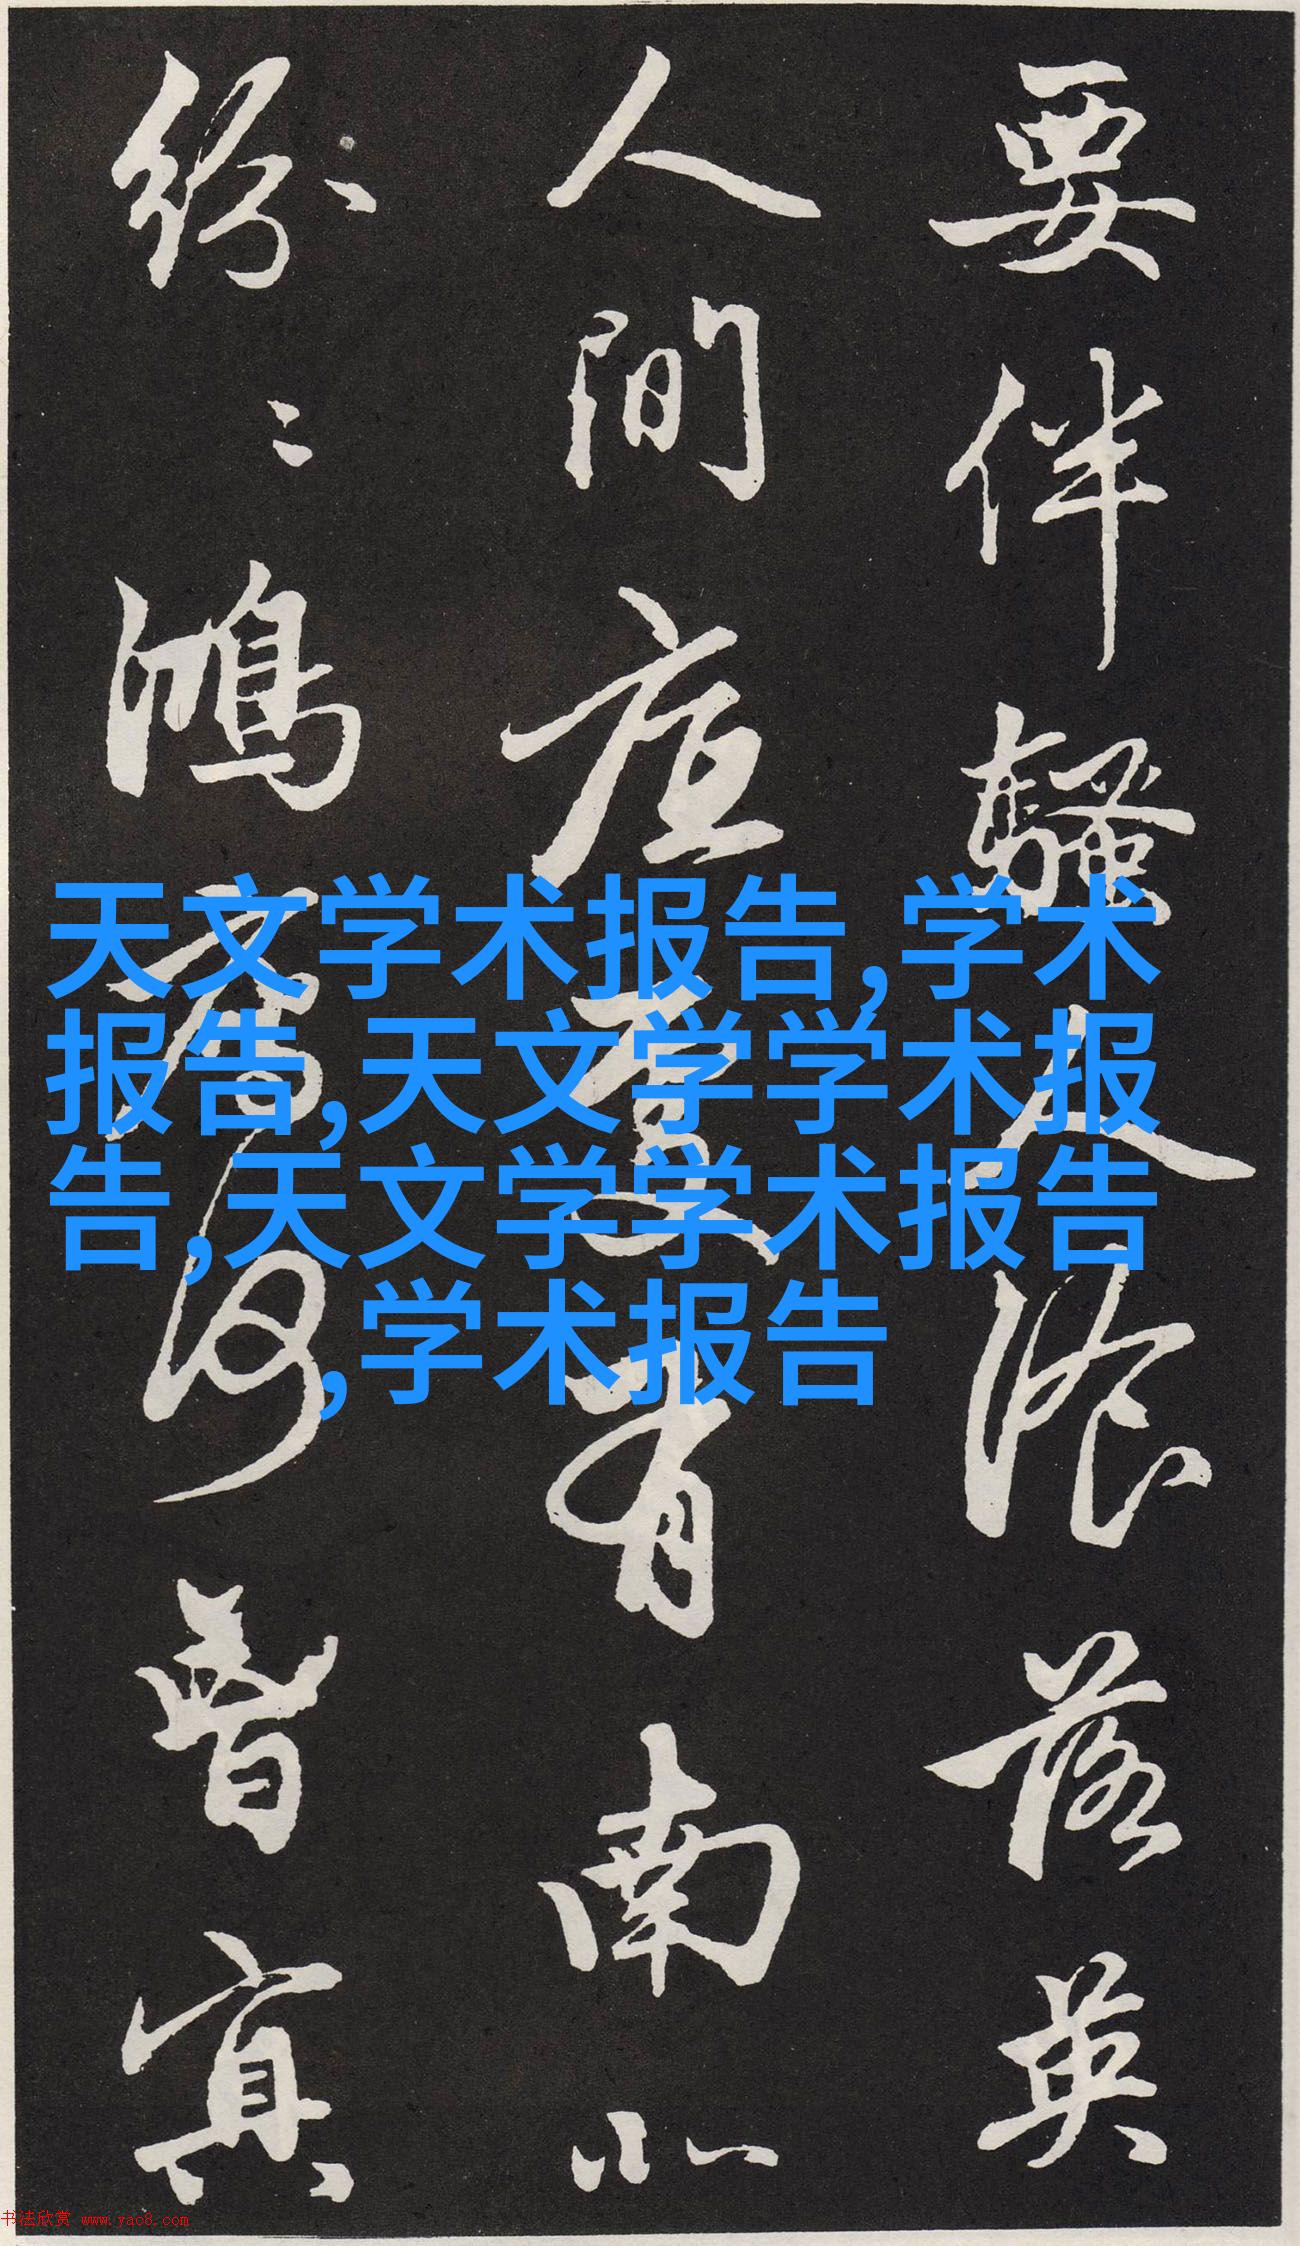 要伴騷人湌落英
人間底處有南北
紛〻鴻雁何曾冥
天文学术报告,学术
报告,天文学学术报
告,天文学学术报告
,学术报告
书法欣赏 www.yac8.com